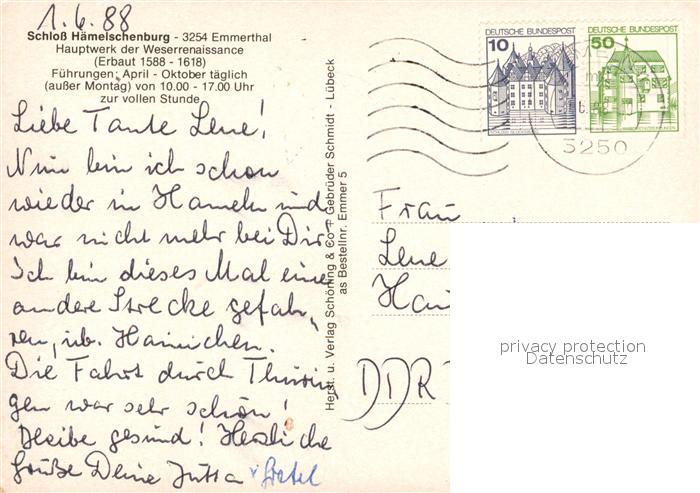 1.6.88
Schloß Hämelschenburg - 3254 Emmerthal
Hauptwerk der Weserrenaissance
(Erbaut 1588 - 1618)
Führungen: April - Oktober täglich
(außer Montag) von 10.00 - 17.00 Uhr
zur vollen Stunde
Liebe Tante Lene!
Nun bin ich schon
wieder in Hameln und
war nicht mehr bei Dir.
Ich bin dieses Mal eine
andere Strecke gefah-
ren, üb. Hainichen.
Die Fahrt durch Thürin
gen war sehr schön!
Bleibe gesund! Herzliche
Grüße Deine Jutta v. Gretel
Herst. u. Verlag Schöning & Co + Gebrüder Schmidt - Lübeck
as Bestellnr. Emmer 5
10 DEUTSCHE BUNDESPOST
50 DEUTSCHE BUNDESPOST
3250
Frau
Lene
Hai
DDR
privacy protection
Datenschutz